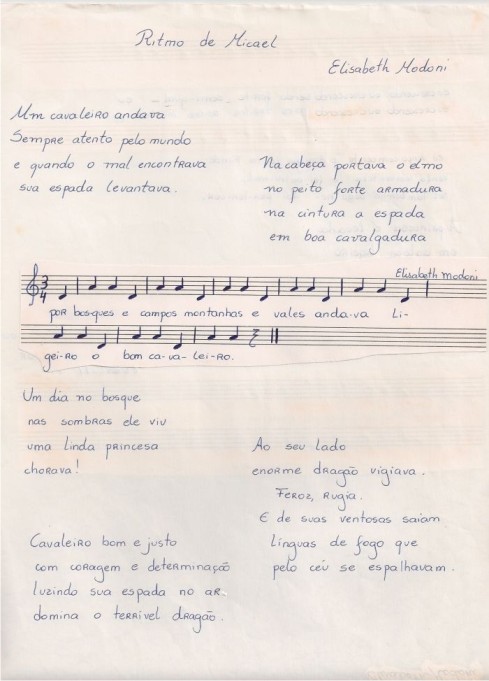 Ritmo de Micael
Elisabeth Modoni
Um cavaleiro andava
Sempre atento pelo mundo
e quando o mal encontrava
sua espada levantava.
Na cabeça portava o elmo
no peito forte armadura
na cintura a espada
em boa cavalgadura
Elisabeth Modoni
3
4
por bosques e campos montanhas e vales anda-va Li-
gei-ro o bom ca-va-lei-ro.
Um dia no bosque
nas sombras ele viu
uma linda princesa
chorava!
Ao seu lado
enorme dragão vigiava.
Feroz, rugia.
E de suas ventosas saiam
Línguas de fogo que
pelo céu se espalhavam.
Cavaleiro bom e justo
com coragem e determinação
luzindo sua espada no ar
domina o terrível dragão.